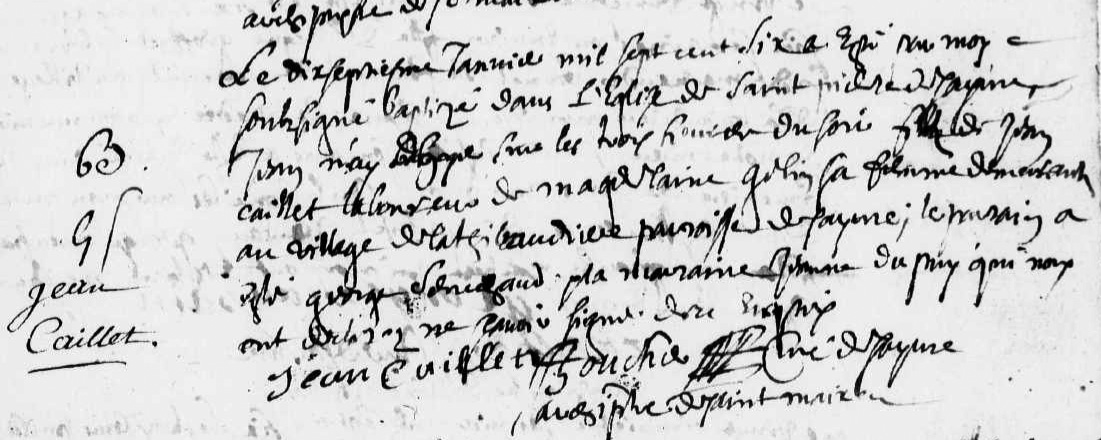 archiprestre de
Le dixseptiesme Janvier mil sept cent six a esté par moy
soubsigné baptizé dans l'Eglise de Saint pierre de payre
Jean né sur les trois heures du soir fils de Jean
caillet laboureur de magdelaine gelin sa femme demeurants
au village de la thibaudiere parroisse de payre; le parain a
esté george et la maraine Jeanne dupuy qui nous
ont declaré ne savoir signer de ce enquis
jean Caillet curé de payre
archiprestre de saint maixent
B
jean
Caillet.